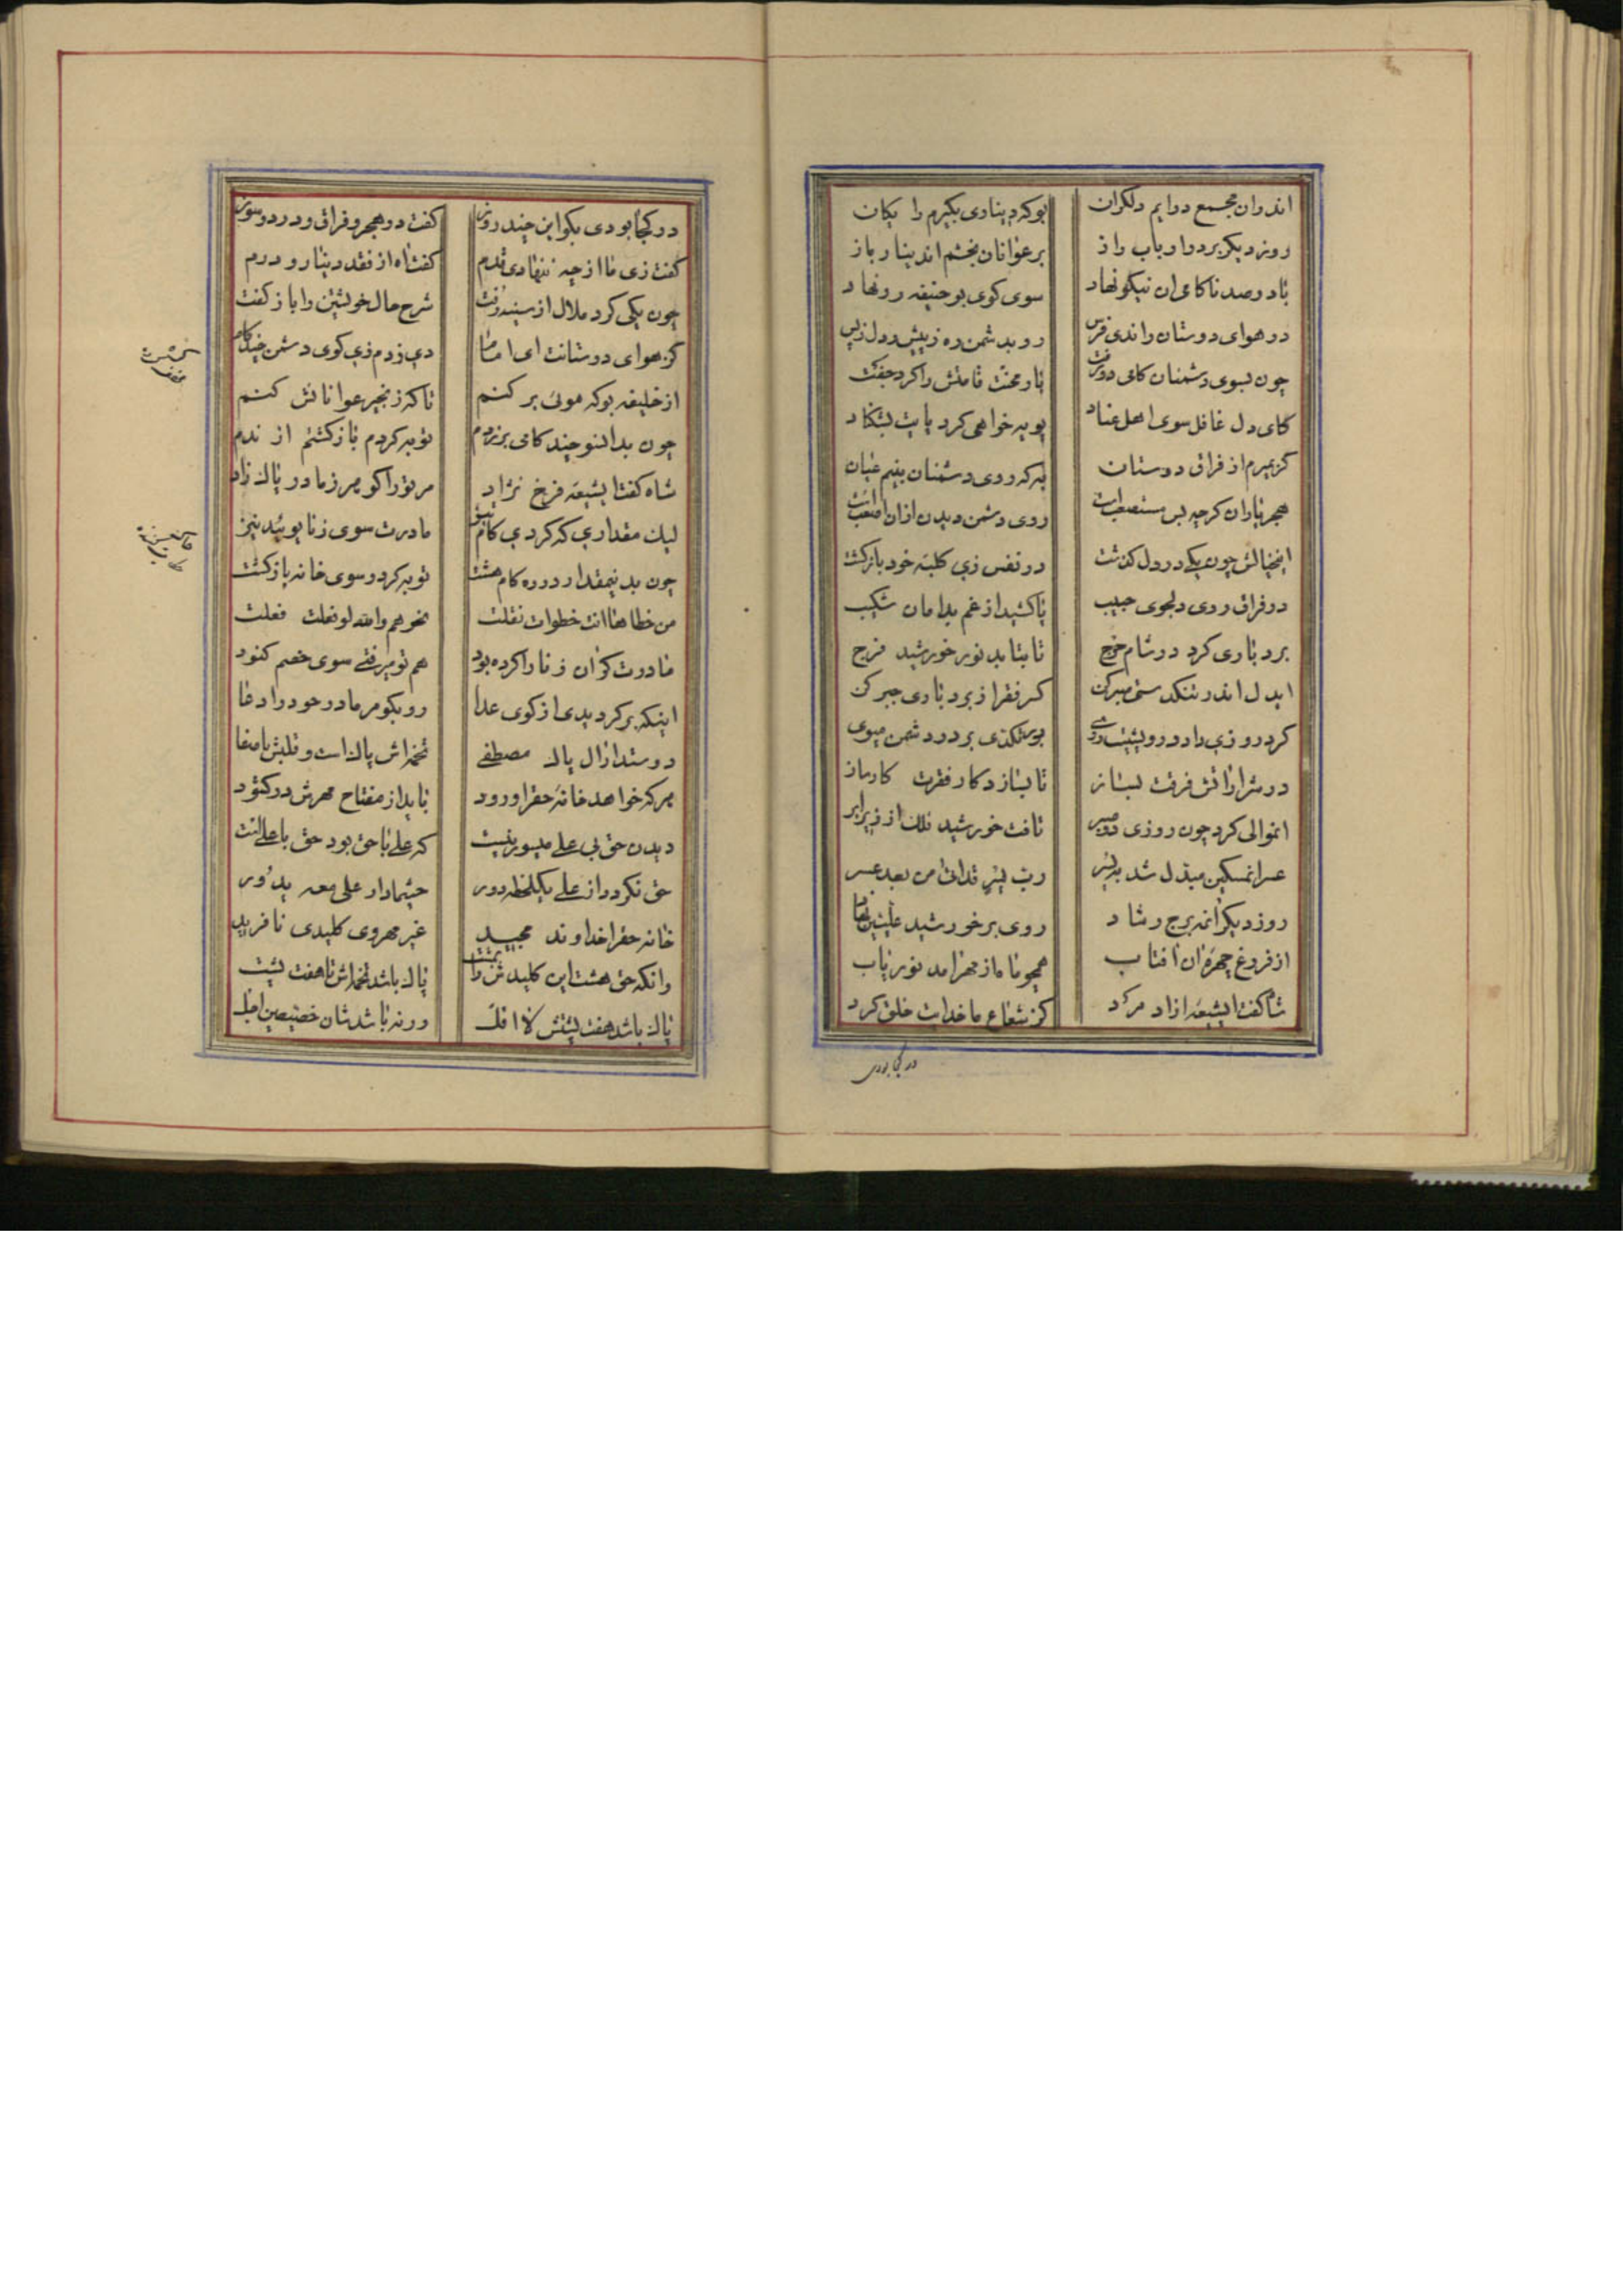 اندران مجمع درایم دلکران
بو که دیناری بکیرم رایکان
روز دیکر بر در ارباب راز
بر عوانان بخشم اندینار باز
با دو صد ناکامی ان نیکو نهاد
سوی کوی بو حنیفه رو نهاد
در هوای دوستان راندی فرس
رو بدشمن ره ز پیش و دل ز پس
چون بسوی دشمنان کامی دو رفت
بار محنت قامتش را کرد جفت
کای دل غافل سوی اهل عناد
پویه خواهی کرد پایت بشکناد
کر بمیرم از فراق دوستان
به که روی دشمنان بینم عیان
هجر یاران کرچه بس مستصعب است
روی دشمن دیدن ازان اصعب است
اینخیالش چون یکی در دل کذشت
در نفس زی کلبه خود بازکشت
در فراق روی دلجوی حبیب
پا کشید از غم بدامان شکیب
بردباری کرد در شام حرج
تا بتابد نور خورشید فرج
ایدل اندر تنکدستی صبر کن
کسر فقر از بردباری جبر کن
کرد روزی داد و درویشیت روی
بر در دشمن مپوی
در شرار اتش فرقت بساز
تا بسازد کار فقرت کارساز
انموالی کرد چون روزی دو صبر
تافت خورشید فلک از زیر ابر
عسر انمسکین مبدل شد بیسر
رب یسر قد اتی من بعد عسر
روز دیکر انمه برج رشاد
روی بر خورشید علیین نهاد
از فروغ چهره ان افتاب
همچو ماه از مهر امد نور یاب
شاه کفت ایشیعه ازاد مرد
کز شعاع ما خدات خلق کرد
در کجا بودی
در کجا بودی بکو این چند روز
کفت در هجر و فراق و درد و سوز
کفت زی ما از چه ننهادی قدم
کفت اه از نقد دینار و درم
چون یکی کرد ملال از سینه رفت
شرح حال خویشتن را باز کفت
کز هوای دوستانت ای اماما
دی زدم زی کوی دشمن چند کام
از خلیفه بو که مونی بر کنم
تا که زنجیر عوانانش کنم
چون بدانسو چند کامی بر زدم
توبه کردم بازکشتم از ندم
شاه کفت ایشیعه فرخ نژاد
مر تو را کوهر ز مادر پاک زاد
لیک مقداری که کردی کام تیز
مادرت سوی زنا پوئید نیز
چون بدینمقدار در ره کام هشت
توبه کرد و سوی خانه بازکشت
من خطاها انت خطوات نقلت
نحوهم والله لو فعلت فعلت
مادرت کر ان زنا را کرده بود
هم تو میرفتی سوی خصم کنود
اینکه بر کردیدی از کوی عدا
رو بکو مر مادر خود را دعا
دوستدار ال پاک مصطفی
تخمه اش پاک است و قلبش با صفا
هر که خواهد خانه حق را ورود
باید از مفتاح مهرش در کشود
دیدن حق بی علی میسور نیست
که علی با حق بود حق با علیست
حق نکردد از علی یکلحظه دور
حیثما دار علی معه یدور
خانه حق را خداوند مجید
غیر مهر وی کلیدی نافرید
وانکه حق هشت این کلیدش را بمشت
پاک باشد تخمه اش تا هفت پشت
پاک باشد هفت پشتش لا اقل
ورنه باشد شان